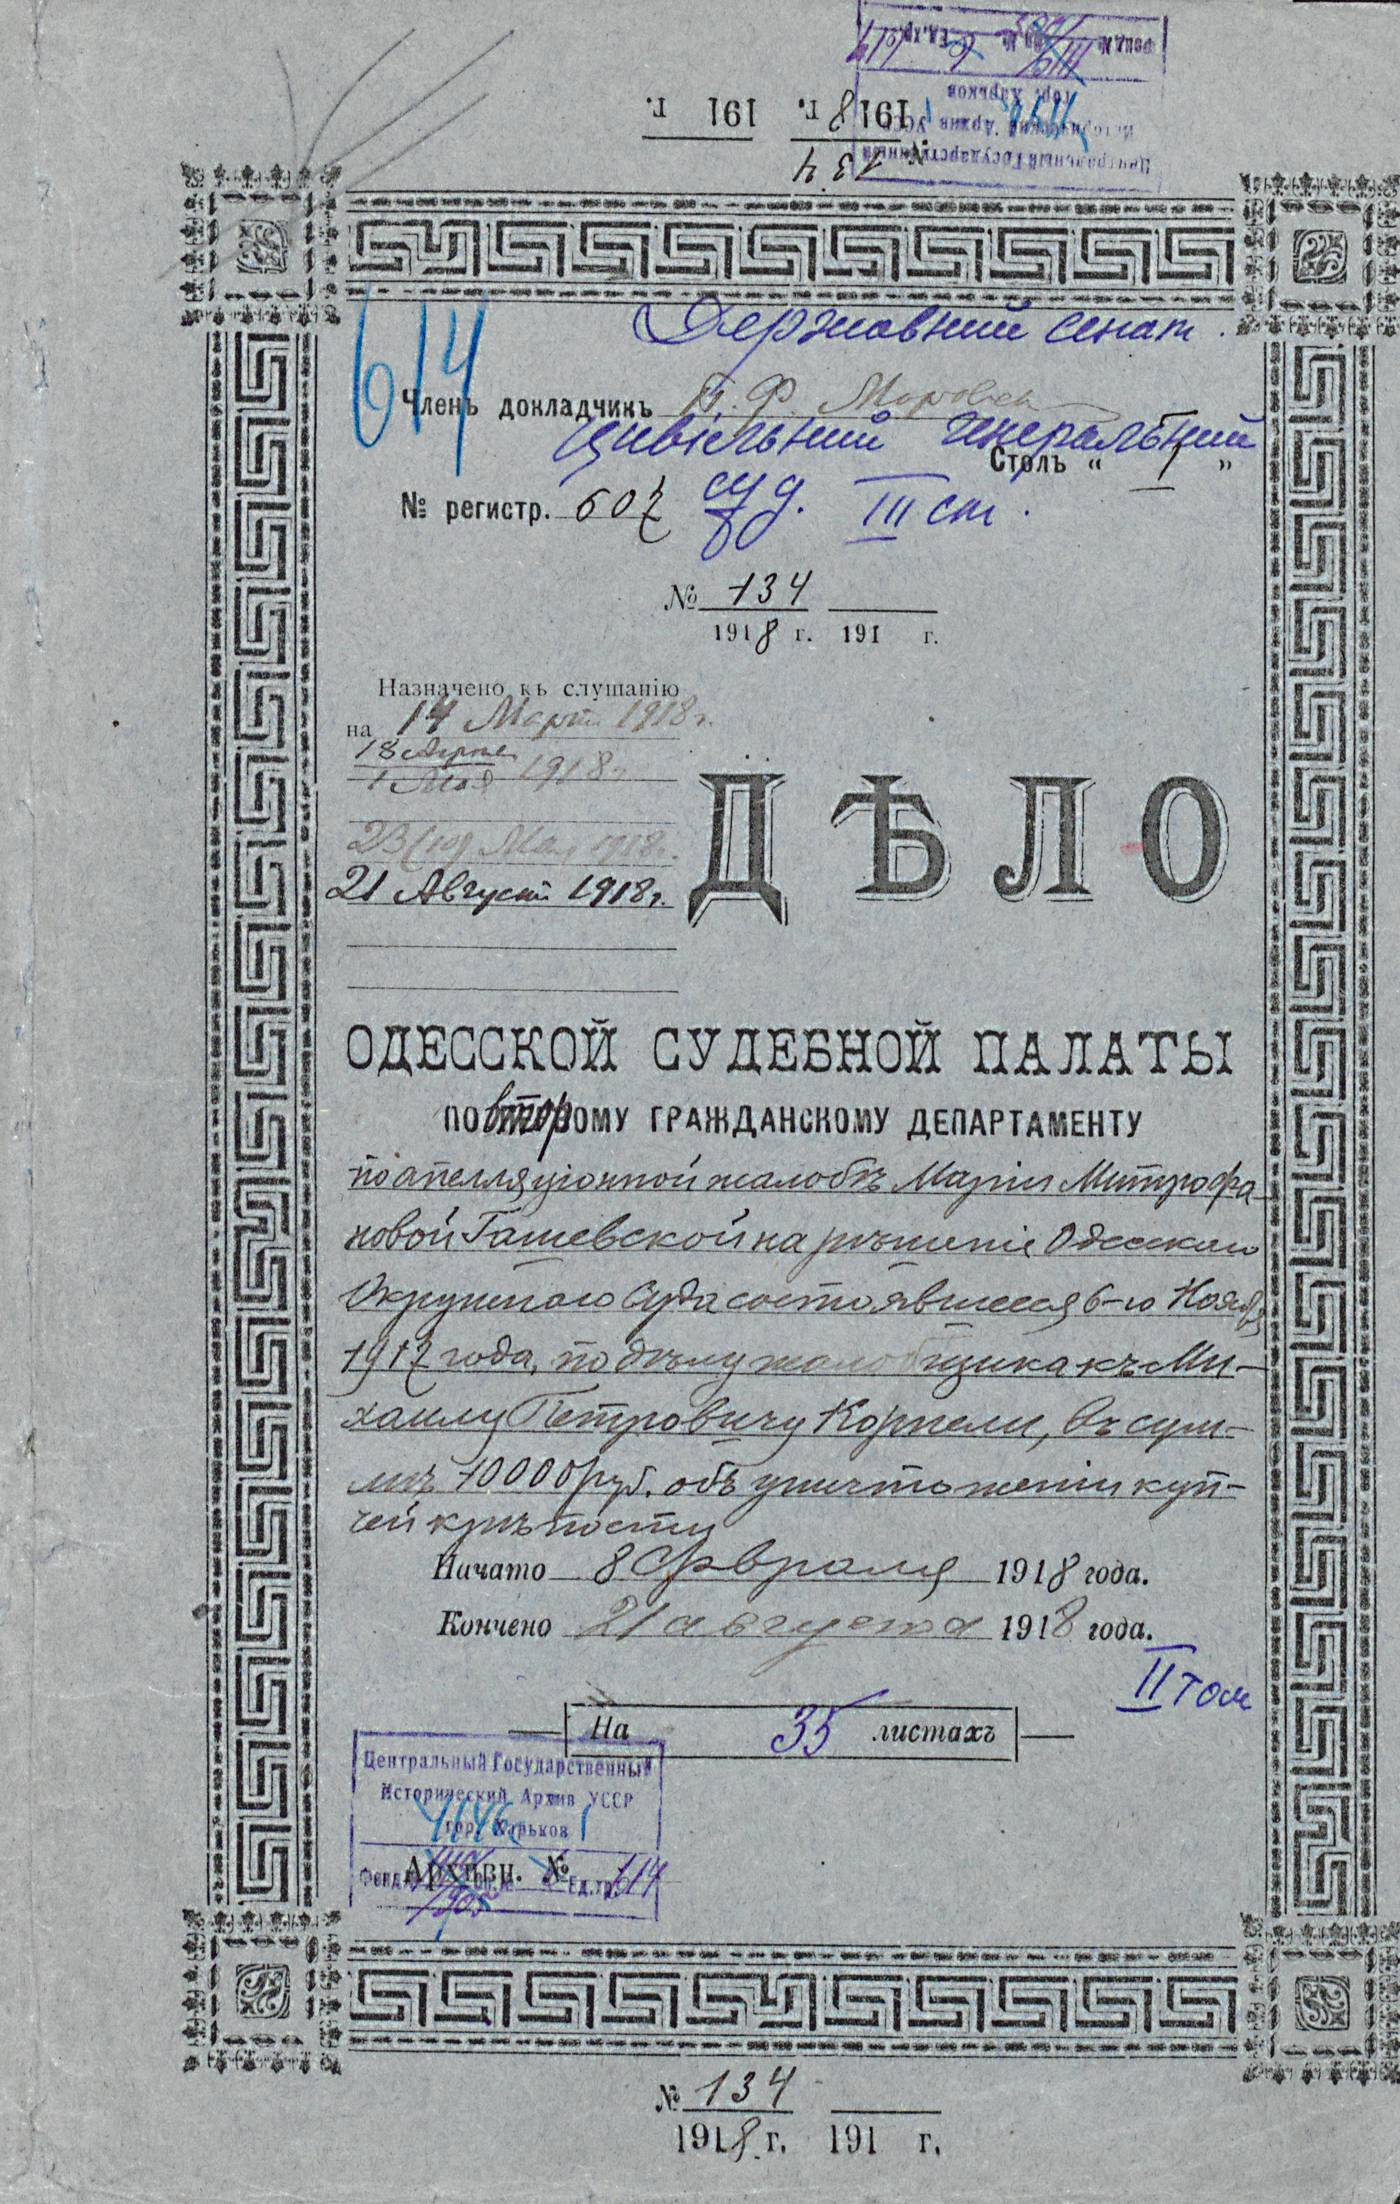 № 134
1918 г. 191 г.
Центральный Государственный
Исторический Архив УССР
гор. Харьков
Фонд № Оп. № Ед. хр.
614
Державний Сенат.
Членъ докладчикъ П. Ф.
Цивільний Генеральний
Столъ „ I "
№ регистр. 607 суд. III ст.
№ 134
1918 г. 191 г.
Назначено къ слушанію
на 14 Марта 1918 г.
18 Апреля
1 Мая 1918 г.
23 (10) Мая 1918 г.
21 Августа 1918 г.
ДѢЛО
ОДЕССКОЙ СУДЕБНОЙ ПАЛАТЫ
ПО второму ГРАЖДАНСКОМУ ДЕПАРТАМЕНТУ
по апелляціонной жалобѣ Маріи Митрофа-
новой Гашевской на рѣшеніе Одесскаго
Окружного Суда состоявшееся 6-го Ноября
1917 года, по дѣлу жалобщика къ Ми-
хаилу Петровичу Корпели, въ сум-
мѣ 10000 руб. объ уничтоженіи куп-
чей крѣпости
Начато 8 Февраля 1918 года.
Кончено 21 августа 1918 года.
II том
На 35 листахъ
Центральный Государственный
Исторический Архив УССР
гор. Харьков
Архивн. №
Фонд № Оп. № Ед. хр. 614
№ 134
1918 г. 191 г.